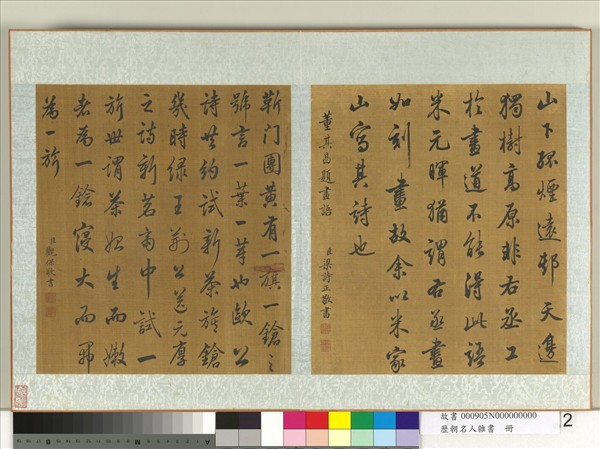 山下孤煙遠邨天邊
獨樹高原非右丞工
於畫道不能得此語
米元暉猶謂右丞畫
如刻畫故余以米家
山寫其詩也
董其昌題畫語
臣梁詩正敬書
靳門團黄有一旗一鎗之
號言一葉一芽也歐公
詩共約試新茶旗鎗
幾時緑王荊公送元厚
之詩新茗齋中試一
旂世謂茶始生而嫩
者為一鎗寖大而開
為一旂
臣觀保敬書
故書 000905N000000000
歷朝名人雜書 冊
2